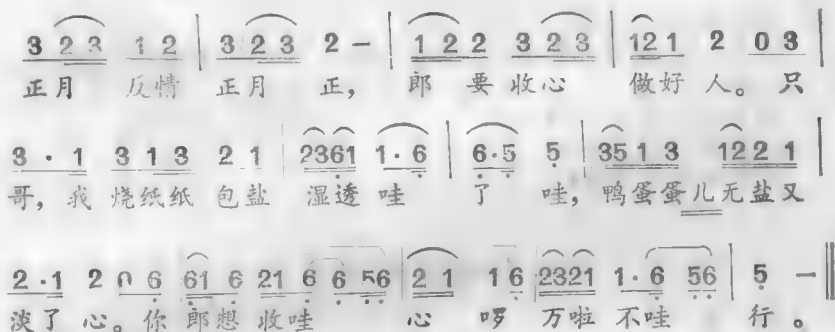 3 2 3 1 2 | 3 2 3 2 — | 1 2 2 3 2 3 | 12 1 2 0 3 |
正月 反情 正月 正， 郎 要 收心 做好 人。 只
3 · 1 3 1 3 2 1 | 2361 1 · 6 | 6 · 5 5 | 35 1 3 12 2 1 |
哥，我 烧纸纸 包盐 湿透 哇 了 哇，鸭蛋蛋儿无盐又
2 · 1 2 0 6 | 61 6 21 6 6 56 | 2 1 1 6 | 2321 1 · 6 56 | 5 — ‖
淡了 心。你 郎想 收哇 心 啰 万啦 不哇 行。